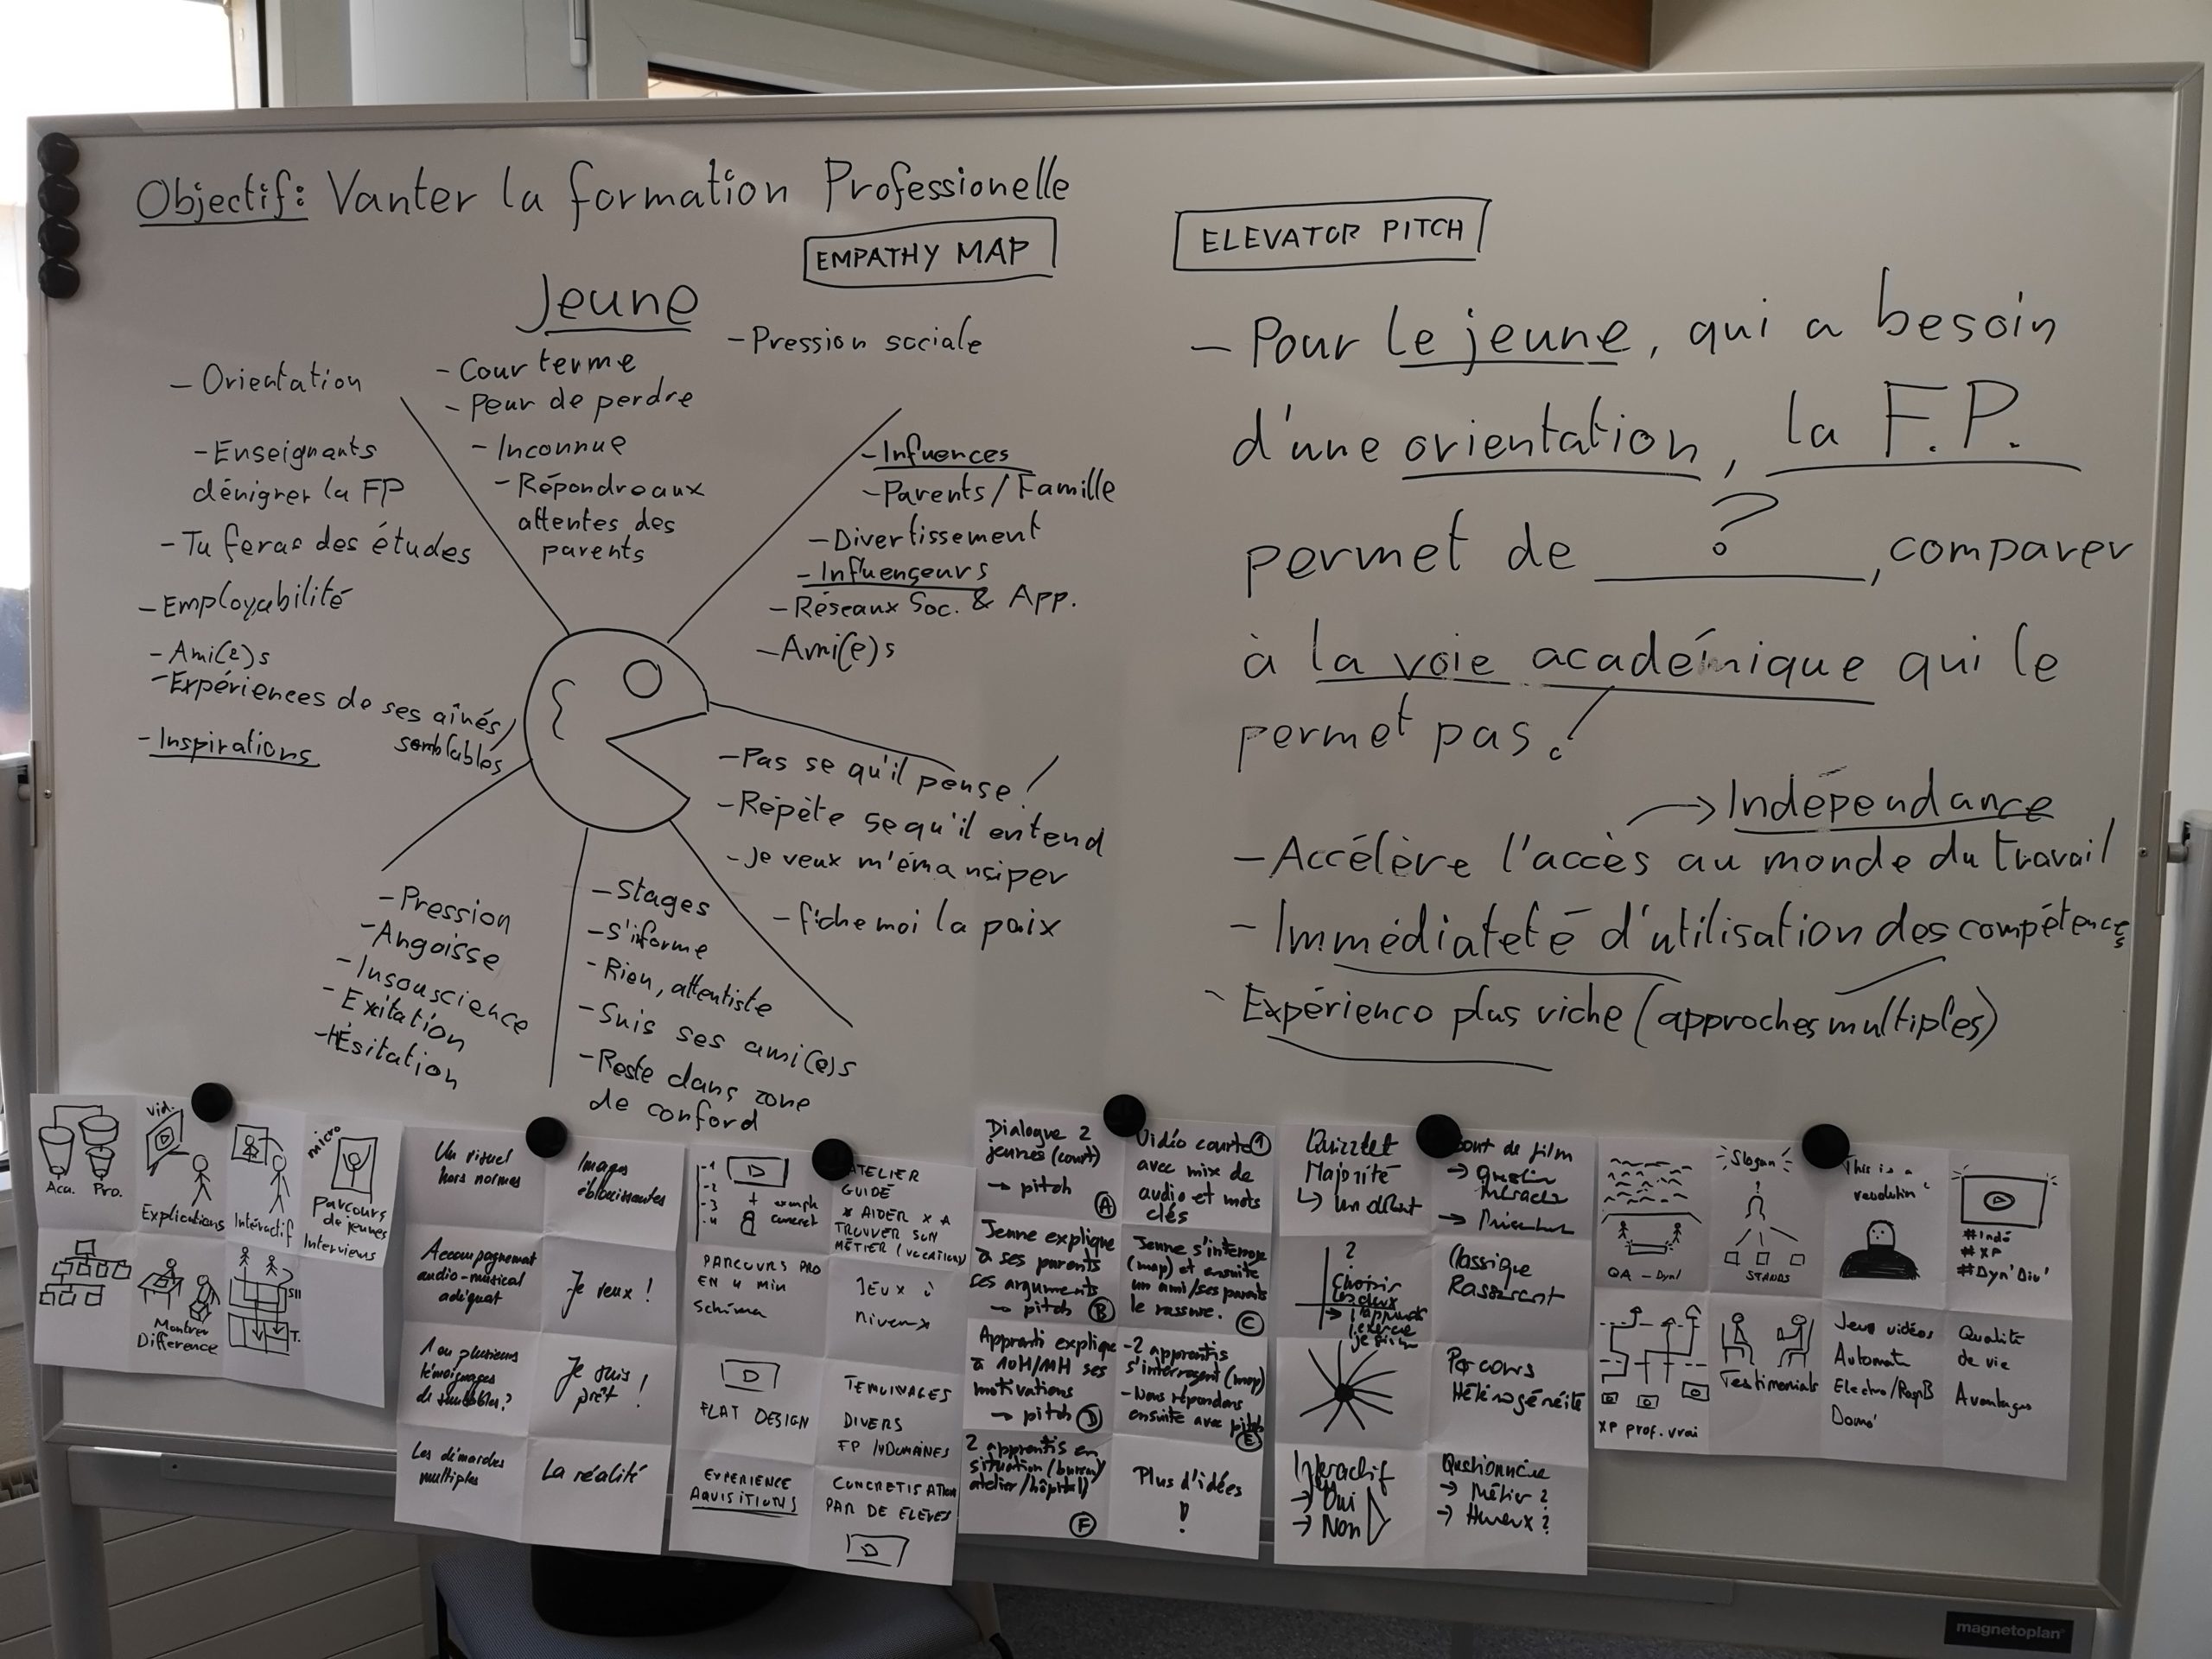 Objectif: Vanter la formation Professionelle
EMPATHY MAP
Jeune
- Orientation
- Enseignants
dénigrer la FP
- Tu feras des études
- Employabilité
- Ami(e)s
- Expériences de ses aînés
semblables
- Inspirations
- Cour terme
- Peur de perdre
- Inconnue
- Répondre aux
attentes des
parents
- Pression sociale
- Infuences
- Parents/Famille
- Divertissement
- Influenceurs
- Réseaux Soc. & App.
- Ami(e)s
- Pas se qu'il pense!
- Répète se qu'il entend
- Je veux m'émanciper
- fiche moi la paix
- Stages
- S'iforme
- Rien, attentiste
- Suis ses ami(e)s
- Reste dans zone
de conford
- Pression
- Angoisse
- Insouscience
- Exitation
- Hésitation
ELEVATOR PITCH
- Pour le jeune, qui a besoin
d'une orientation, la F.P.
permet de ?, comparer
à la voie académique qui le
permet pas!
→ Indépendance
- Accélère l'accès au monde du travail
- Immédiateté d'utilisation des compétences
- Expérience plus riche (approches multiples)
Aca. Pro.
vid.
Explications
Intéractif
micro
Parcours
de jeunes
Interviews
Montrer
Difference
Un visuel
hors normes
Images
éblouissantes
Accompagnement
audio-musical
adéquat
Je veux !
1 ou plusieurs
témoignages
de semblables?
Je suis
prêt !
Les démarches
multiples
La réalité
-1
-2
-3
-4
+ exemple
concret
ATELIER
GUIDÉ
* AIDER * A
TROUVER SON
MÉTIER (VOCATION)
PARCOURS PRO
EN 4 MIN
Schéma
JEUX à
Niveaux
FLAT DESIGN
TEMOINAGES
DIVERS
FP DOMAINES
EXPERIENCE
AQUISITIONS
CONCRETISATION
PAR DE ELEVES
Dialogue 2
jeunes (court)
→ pitch
A
Vidéo courte
avec mix de
audio et mots
clés
Jeune explique
à ses parents
ses arguments
→ pitch B
Jeune s'interroge
(map) et ensuite
un ami/ses parents
le rassure. C
Apprenti explique
à 10H/11H ses
motivations
→ pitch D
- 2 apprentis
s'interrogent (map)
- Nous répondons
ensuite avec pitch
E
2 apprentis en
situation (bureau/
atelier/hôpital)
F
Plus d'idées
!
Majorité
bout de film
?
Choisir
Classique
Rassurant
Parcours
Hétérogénéité
Interactif
→ Oui
→ Non
Questionnaire
→ Métier ?
→ Heureux ?
QA - Dynl
Slogan
STANDS
This is a
revolution!
#Indé
#XP
#Dyn'Div'
XP prof. vrai
Testimonials
Jeux vidéos
Automat
Domo'
Qualité
de vie
Avantages
magnetoplan